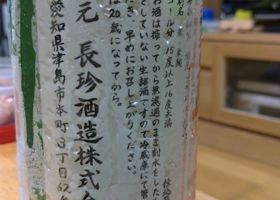 米麹
分15度以上16度未満
お酒は搾ってから無濾過のまま割水をした
していない生詰酒ですので冷蔵庫にて管
だき、早めにお召し上がりください。
は20歳になってから。
元 長珍酒造株式会
愛知県津島市本町3丁目62